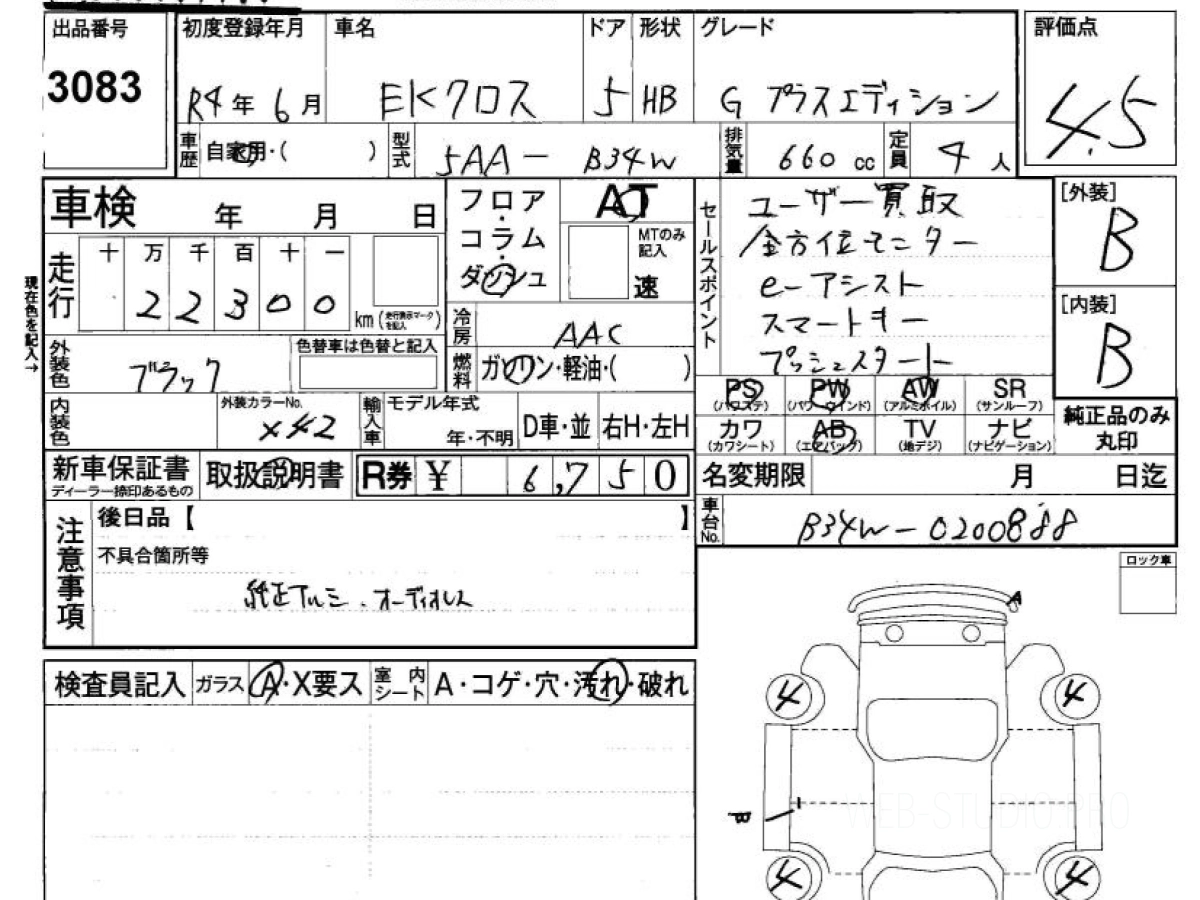 出品番号 初度登録年月 車名 ドア 形状 グレード 評価点
3083 R4年 6月 EKクロス 5 HB G プラスエディション 4.5
車歴 自家用・( ) 型式 5AA-B34W 排気量 660 cc 定員 4人
車検 年 月 日
フロア・コラム・ダッシュ
AT
MTのみ記入
速
セールスポイント
ユーザー買取
全方位モニター
e-アシスト
スマートキー
プッシュスタート
[外装]
B
[内装]
B
現在色を記入→
走行 十 万 千 百 十 一
2 2 3 0 0 km (走行表示マークを記入)
冷房 AAC
外装色 ブラック 色替車は色替と記入
燃料 ガソリン・軽油・( )
内装色 外装カラーNo. X42 輸入車 モデル年式 年・不明 D車・並 右H・左H
PS (パワステ) PW (パワーウインド) AW (アルミホイル) SR (サンルーフ)
カワ (カワシート) AB (エアバッグ) TV (地デジ) ナビ (ナビゲーション)
純正品のみ丸印
新車保証書 ディーラー捺印あるもの 取扱説明書 R券 ¥ 6,750
名変期限 月 日迄
車台No. B34W-0200888
注意事項
後日品【 】
不具合箇所等
純正アルミ、オーディオレス
ロック車
検査員記入 ガラス A・X要ス 室内シート A・コゲ・穴・汚れ・破れ
A
4 4
B
4 4
WEB-STUDIO.PRO